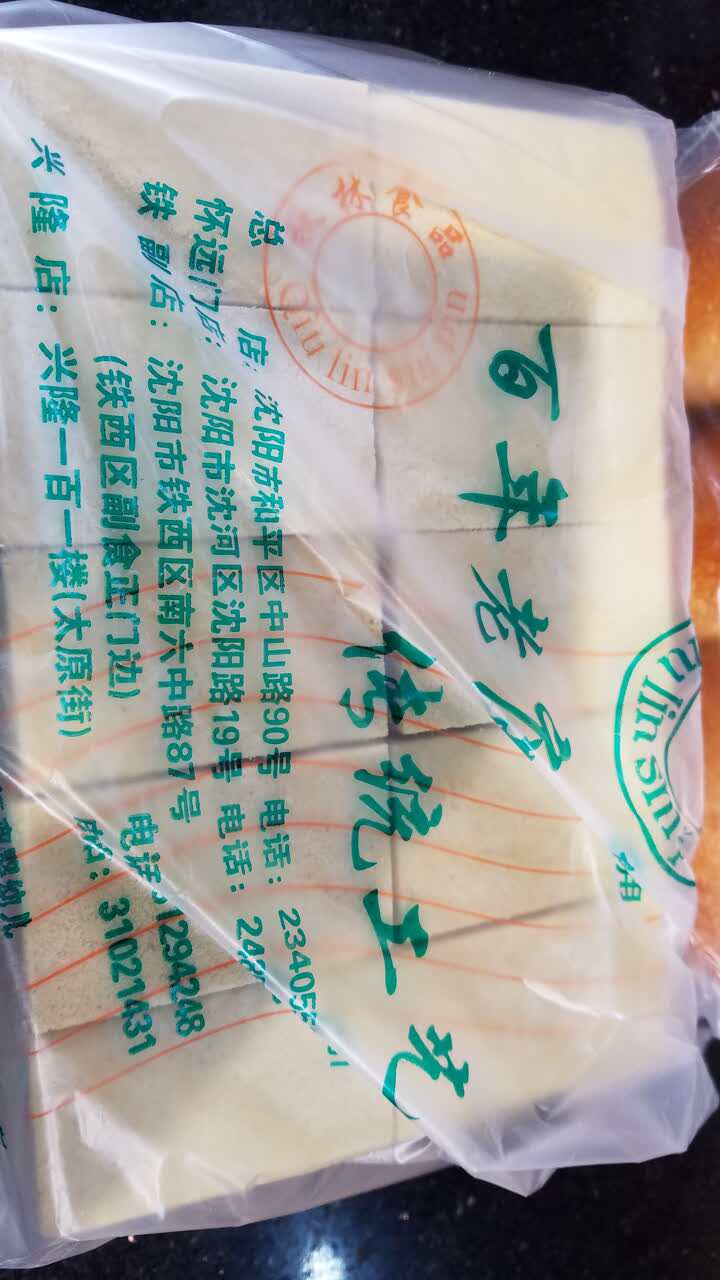 百年老店
传统工艺
食品
Qiu lin
lin
总 店：沈阳市和平区中山路90号 电话：23405
怀远门店：沈阳市沈河区沈阳路19号 电话：24
铁副店：沈阳市铁西区南六中路87号
(铁西区副食正门边) 电话：31294248
兴隆店：兴隆一百一楼(太原街) 电话：31021431